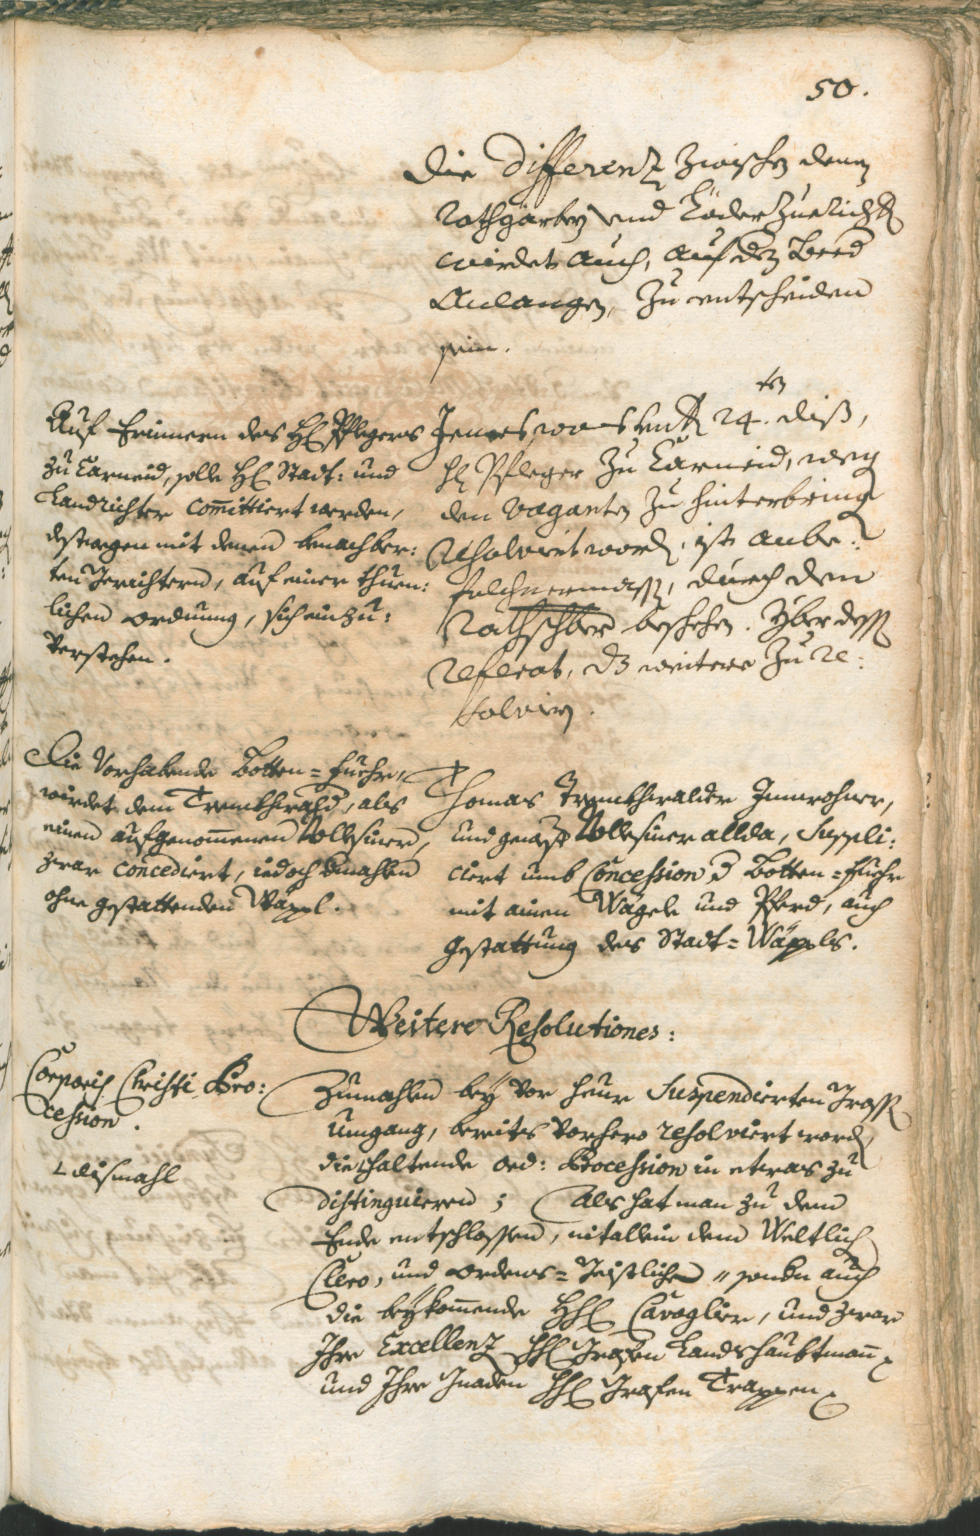 50.
Die Differenz zwischen denen
Rothgärbern und Lederzuricht
wirdet auch, auf den Beed
Anlangen, zu entscheiden
sein.
Auf Erinnern des H: Pflegers
zu Carneid, solle H: Stadt- und
Landrichter committiert werden,
destwegen mit denen benachber:
ten Gerichtern, auf einer thuen:
lichen ordnung, sich einzu:
verstehen.
Jenes, was 24.ten diß,
H: Pfleger zu Carneid, weg
den Vaganten zu hinterbring
resolviert word, ist anbe:
folchnermass, durch den
Rathschber beschehen. Yber dess
referat, dz weitere zu re:
solvirn.
Die Vorhabende Botten=fuehr,
wirdet dem Trembthwald, als
einen aufgenommenen Vollesiner,
zwar concediert, iedoch dimahlen
ohne gestattenden Wäppl.
Thomas Trembthwalder Innwohner,
und gewest Vollesiner allda, Suppli:
ciert umb Concession d Botten=fuehr
mit ainen Wägele und Pferd, auch
gestattung des Stadt=Wäppls.
Weitere Resolutiones:
Corporis Christi Pro:
cession.
L dismahl
Zumahlen bey vor heur suspendierten Gross
Umgang, bereits vorhero resolviert word,
die haltende ord: Procession in etwas zu
distinguieren; Als hat man zu dem
Ende entschlossen, nit allein dem Weltlich
Clero, und Ordens=Geistliche, sonder auch
die beykommende HH: Cavaglier, und zwar
Ihre Excellenz HH: Grafen Landshaubtmann
und Ihre Gnaden HH: Grafen Trappen